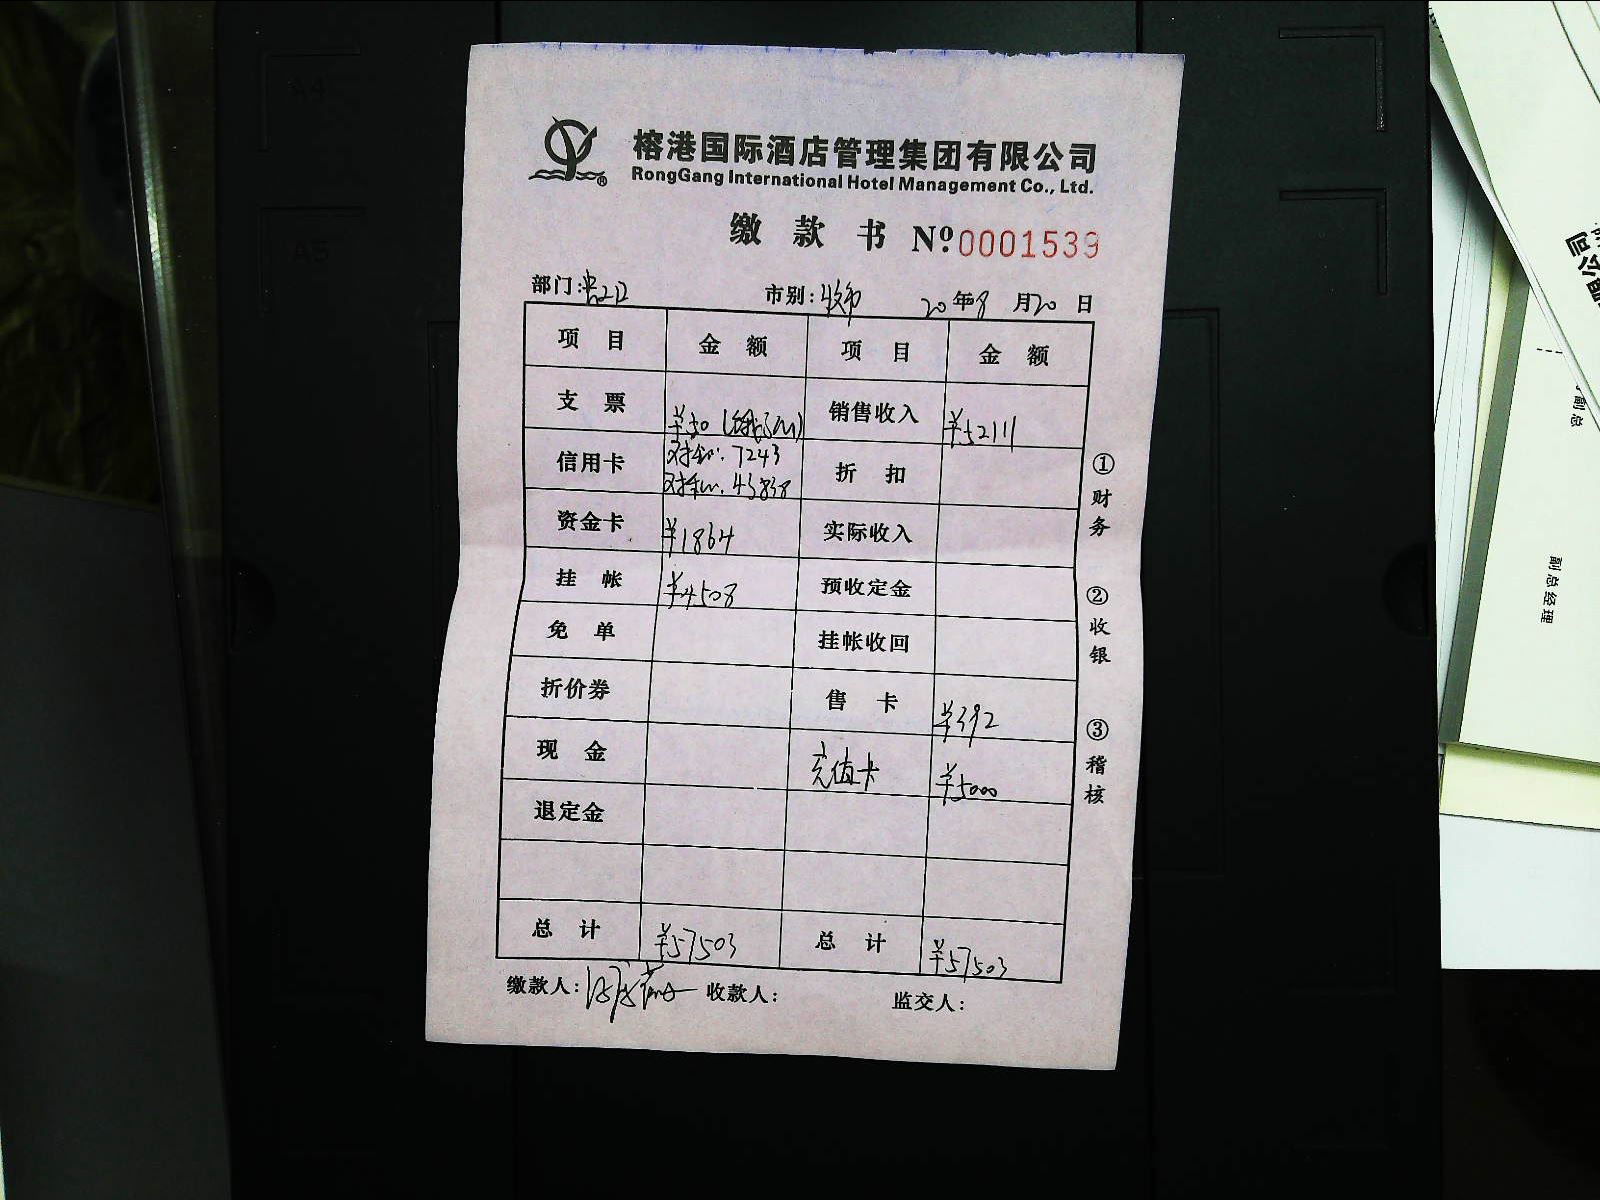 榕港国际酒店管理集团有限公司
RongGang International Hotel Management Co., Ltd.
缴 款 书 Nº.0001539
部门: 市别: 20年8月20日
项目 金额 项目 金额
支票 ¥50 销售收入 ¥52111
信用卡 7243 折扣
43838
资金卡 ¥1864 实际收入
挂帐 ¥4508 预收定金
免单 挂帐收回
折价券 售卡 ¥392
现金 充值卡 ¥5000
退定金
总计 ¥57503 总计 ¥57503
缴款人: 收款人: 监交人:
①财务
②收银
③稽核
A4
A5
限公司
副总
副总经理